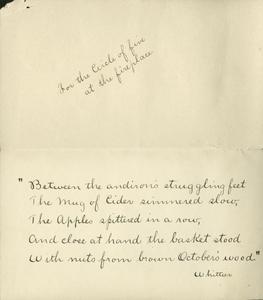 For the Circle of five
at the fireplace
"Between the andiron's struggling feet
The Mug of Cider simmered slow,
The Apples spittered in a row,
And close at hand the basket stood
With nuts from brown October's wood"
Whittier